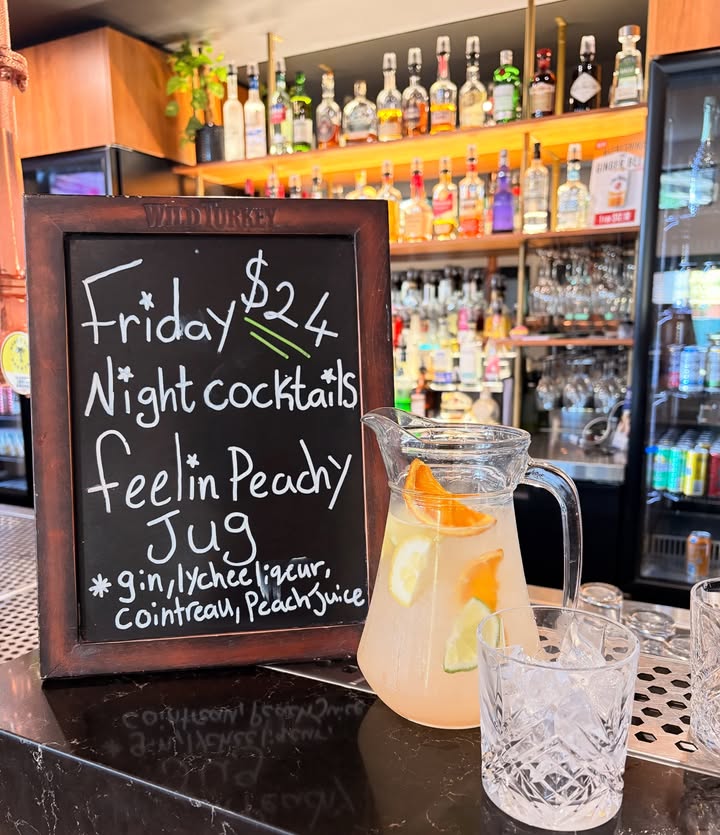 WILD TURKEY
Friday $24
Night cocktails
feelin Peachy
Jug
* gin, lychee liqeur,
Cointreau, Peach Juice
GINGER BEER